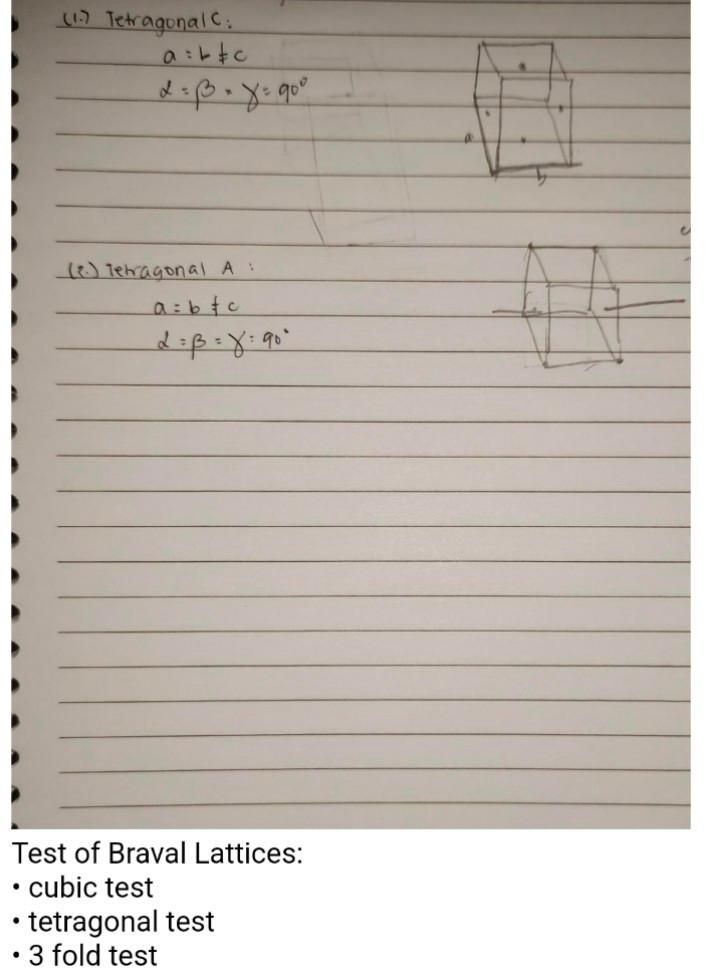 (1.) Tetragonal C:
a = b ≠ c
α = β = γ = 90°
a
b
(2.) Tetragonal A :
a = b ≠ c
α = β = γ = 90°
Test of Braval Lattices:
• cubic test
• tetragonal test
• 3 fold test